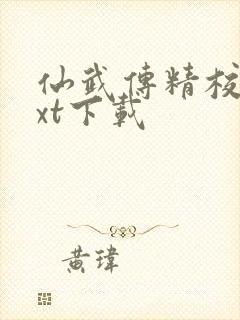 仙武傳精校
xt下載
黃瑋